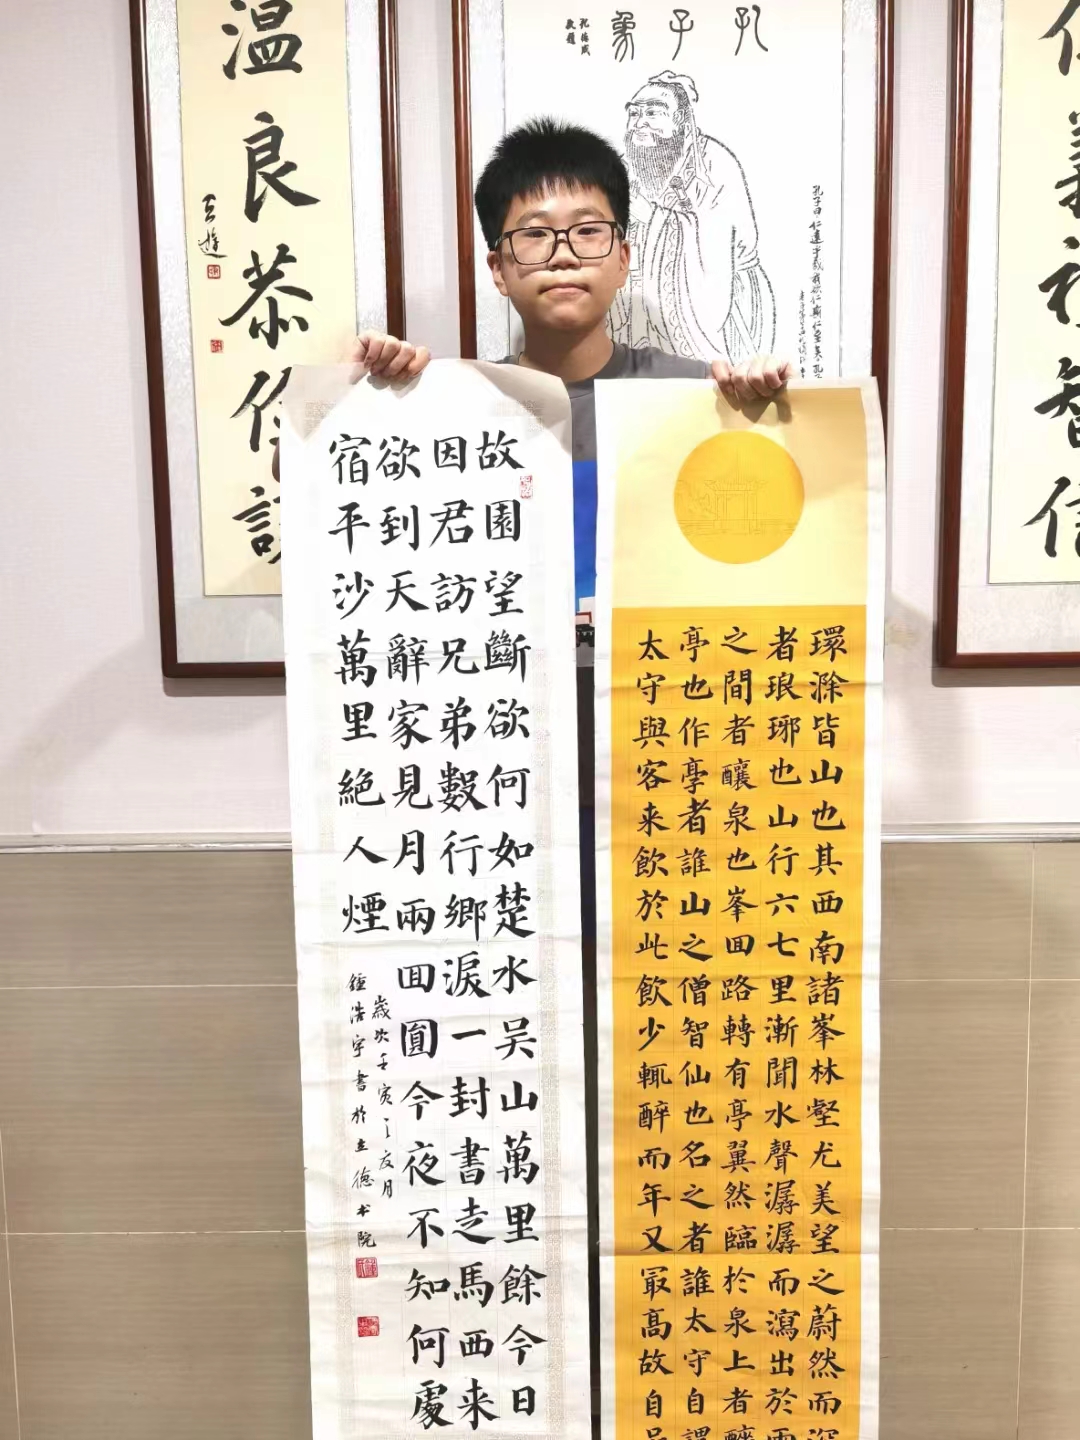 孔子象
孔德成
敬題
孔子曰仁遠乎哉我欲仁斯仁至矣孔
義禮智信
温良恭儉
環滁皆山也其西南諸峯林壑尤美望之蔚然而深
者琅琊也山行六七里漸聞水聲潺潺而瀉出於兩
之間者釀泉也峯囬路轉有亭翼然臨於泉上者醉
亭也作亭者誰山之僧智仙也名之者誰太守自謂
太守與客来飲於此飲少輒醉而年又最高故自
故園望斷欲何如楚水吴山萬里餘今日
因君訪兄弟數行鄉淚一封書走馬西来
欲到天辭家見月兩囬圓今夜不知何處
宿平沙萬里絶人煙
歲次壬寅之月
鍾浩宇書於立德书院